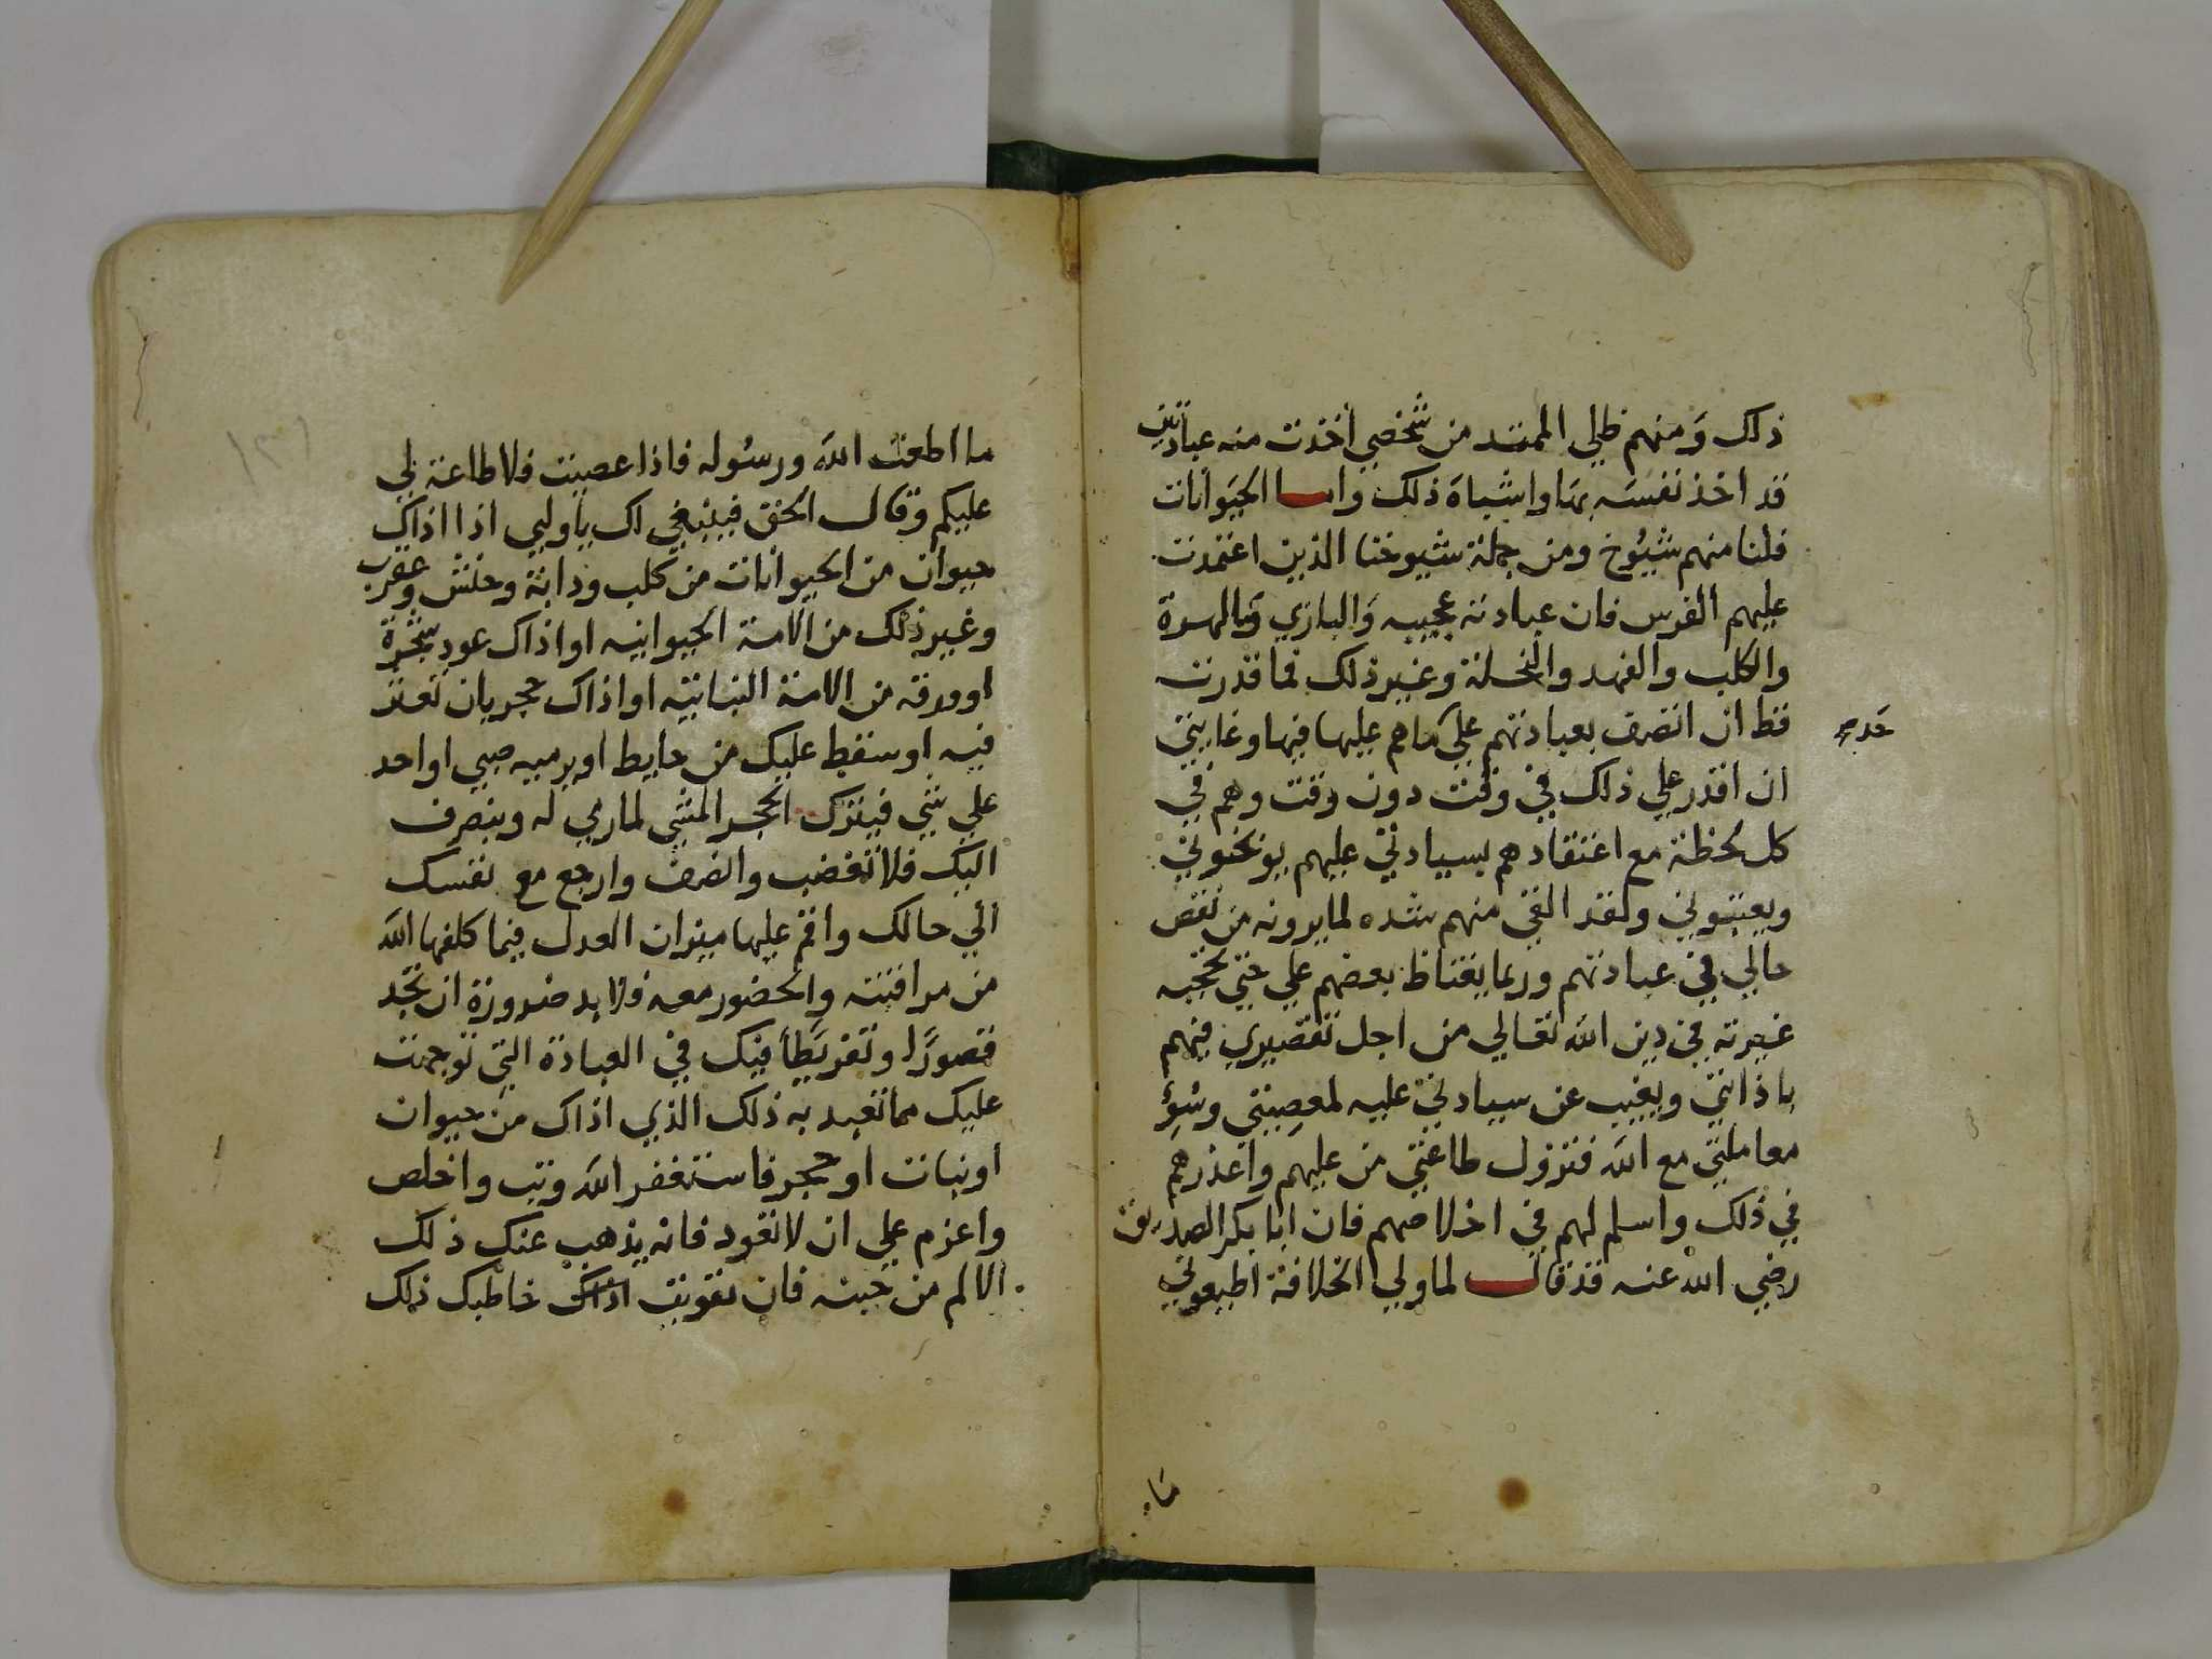 ذلك ومنهم ظلي الممتد من شخصي أخذت منه عبادتين
قد اخذ نفسه بها واشباه ذلك واما الحيوانات
فلنا منهم شيوخ ومن جملة شيوخنا الذين اعتمدت
عليهم الفرس فان عبادته عجيبه والبازي والهرة
والكلب والفهد والنحلة وغير ذلك فما قدرت
قط ان اتصف بعبادتهم على ما هم عليها فيها وغايتي
ان اقدر علي ذلك في وقت دون وقت وهم في
كل لحظة مع اعتقادهم بسيادتي عليهم يوبخوني
ويعتبوني ولقد القى منهم شده لما يرونه من نقص
حالي في عبادتهم وربما يغتاظ بعضهم علي حتي تحجبه
غيرته في دين الله تعالي من اجل تقصيري فيهم
باذايتي ويغيب عن سيادتي عليه لمعصيتي وسوء
معاملتي مع الله فتزول طاعتي من عليهم واعذرهم
في ذلك واسلم لهم في اخلاصهم فان ابا بكر الصديق
رضي الله عنه قد قال لما ولي الخلافة اطيعوني
ما اطعت الله ورسوله فاذا عصيت فلا طاعة لي
عليكم وقال الحق فينبغي لك يا وليي اذا اذاك
حيوان من الحيوانات من كلب ودابة وحنش وعقرب
وغير ذلك من الامة الحيوانيه او اذاك عود شجرة
او ورقه من الامة النباتيه او اذاك حجر بان تعثر
فيه او سقط عليك من حايط او يرميه صبي او احد
علي شي فيترك الحجر المشي لما رمي له وينصرف
اليك فلا تغضب وانصف وارجع مع نفسك
الي حالك واقم عليها ميزان العدل فيما كلفها الله
من مراقبته والحضور معه فلا بد ضرورة ان تجد
قصورا وتفريطا فيك في العبادة التي توجهت
عليك مما تعبد به ذلك الذي اذاك من حيوان
او نبات او حجر فاستغفر الله وتب واخلص
واعزم علي ان لا تعود فانه يذهب عنك ذلك
الالم من حينه فان تقويت اذاك خاطبك ذلك
ما
١٣١